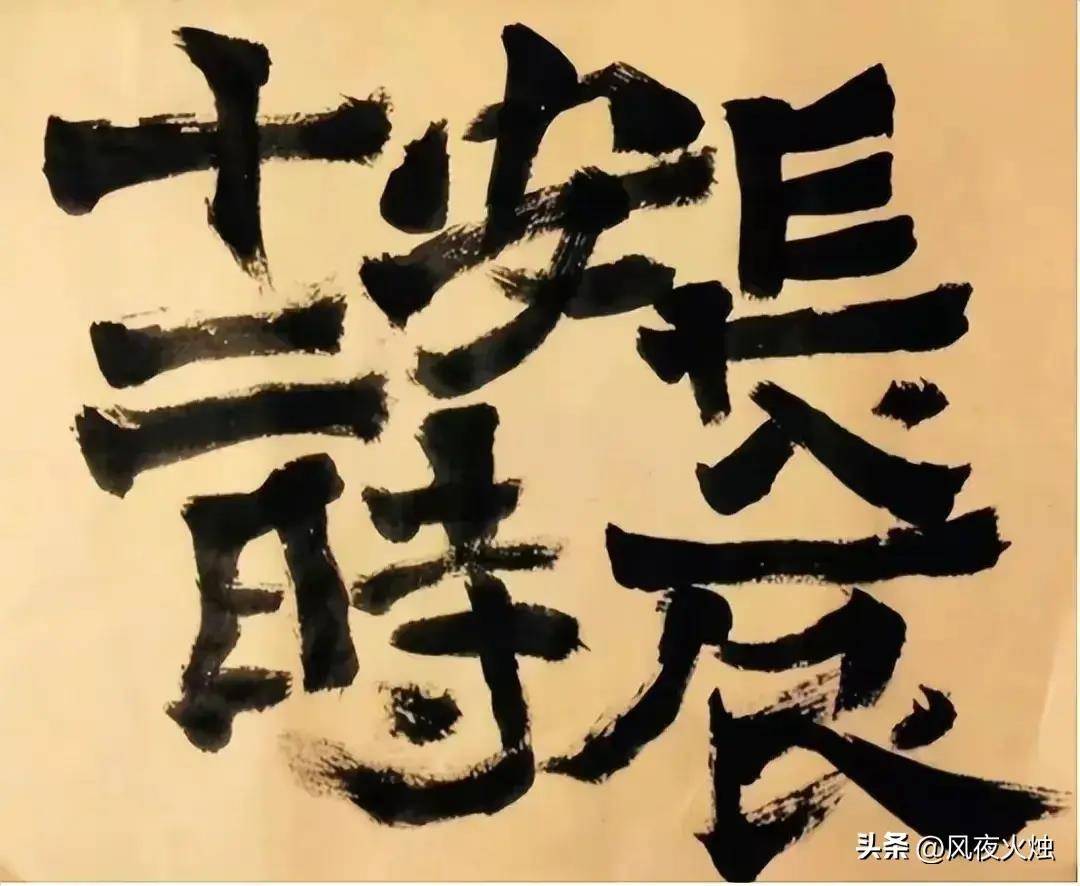 長安十二
時辰
头条 @风夜火烛